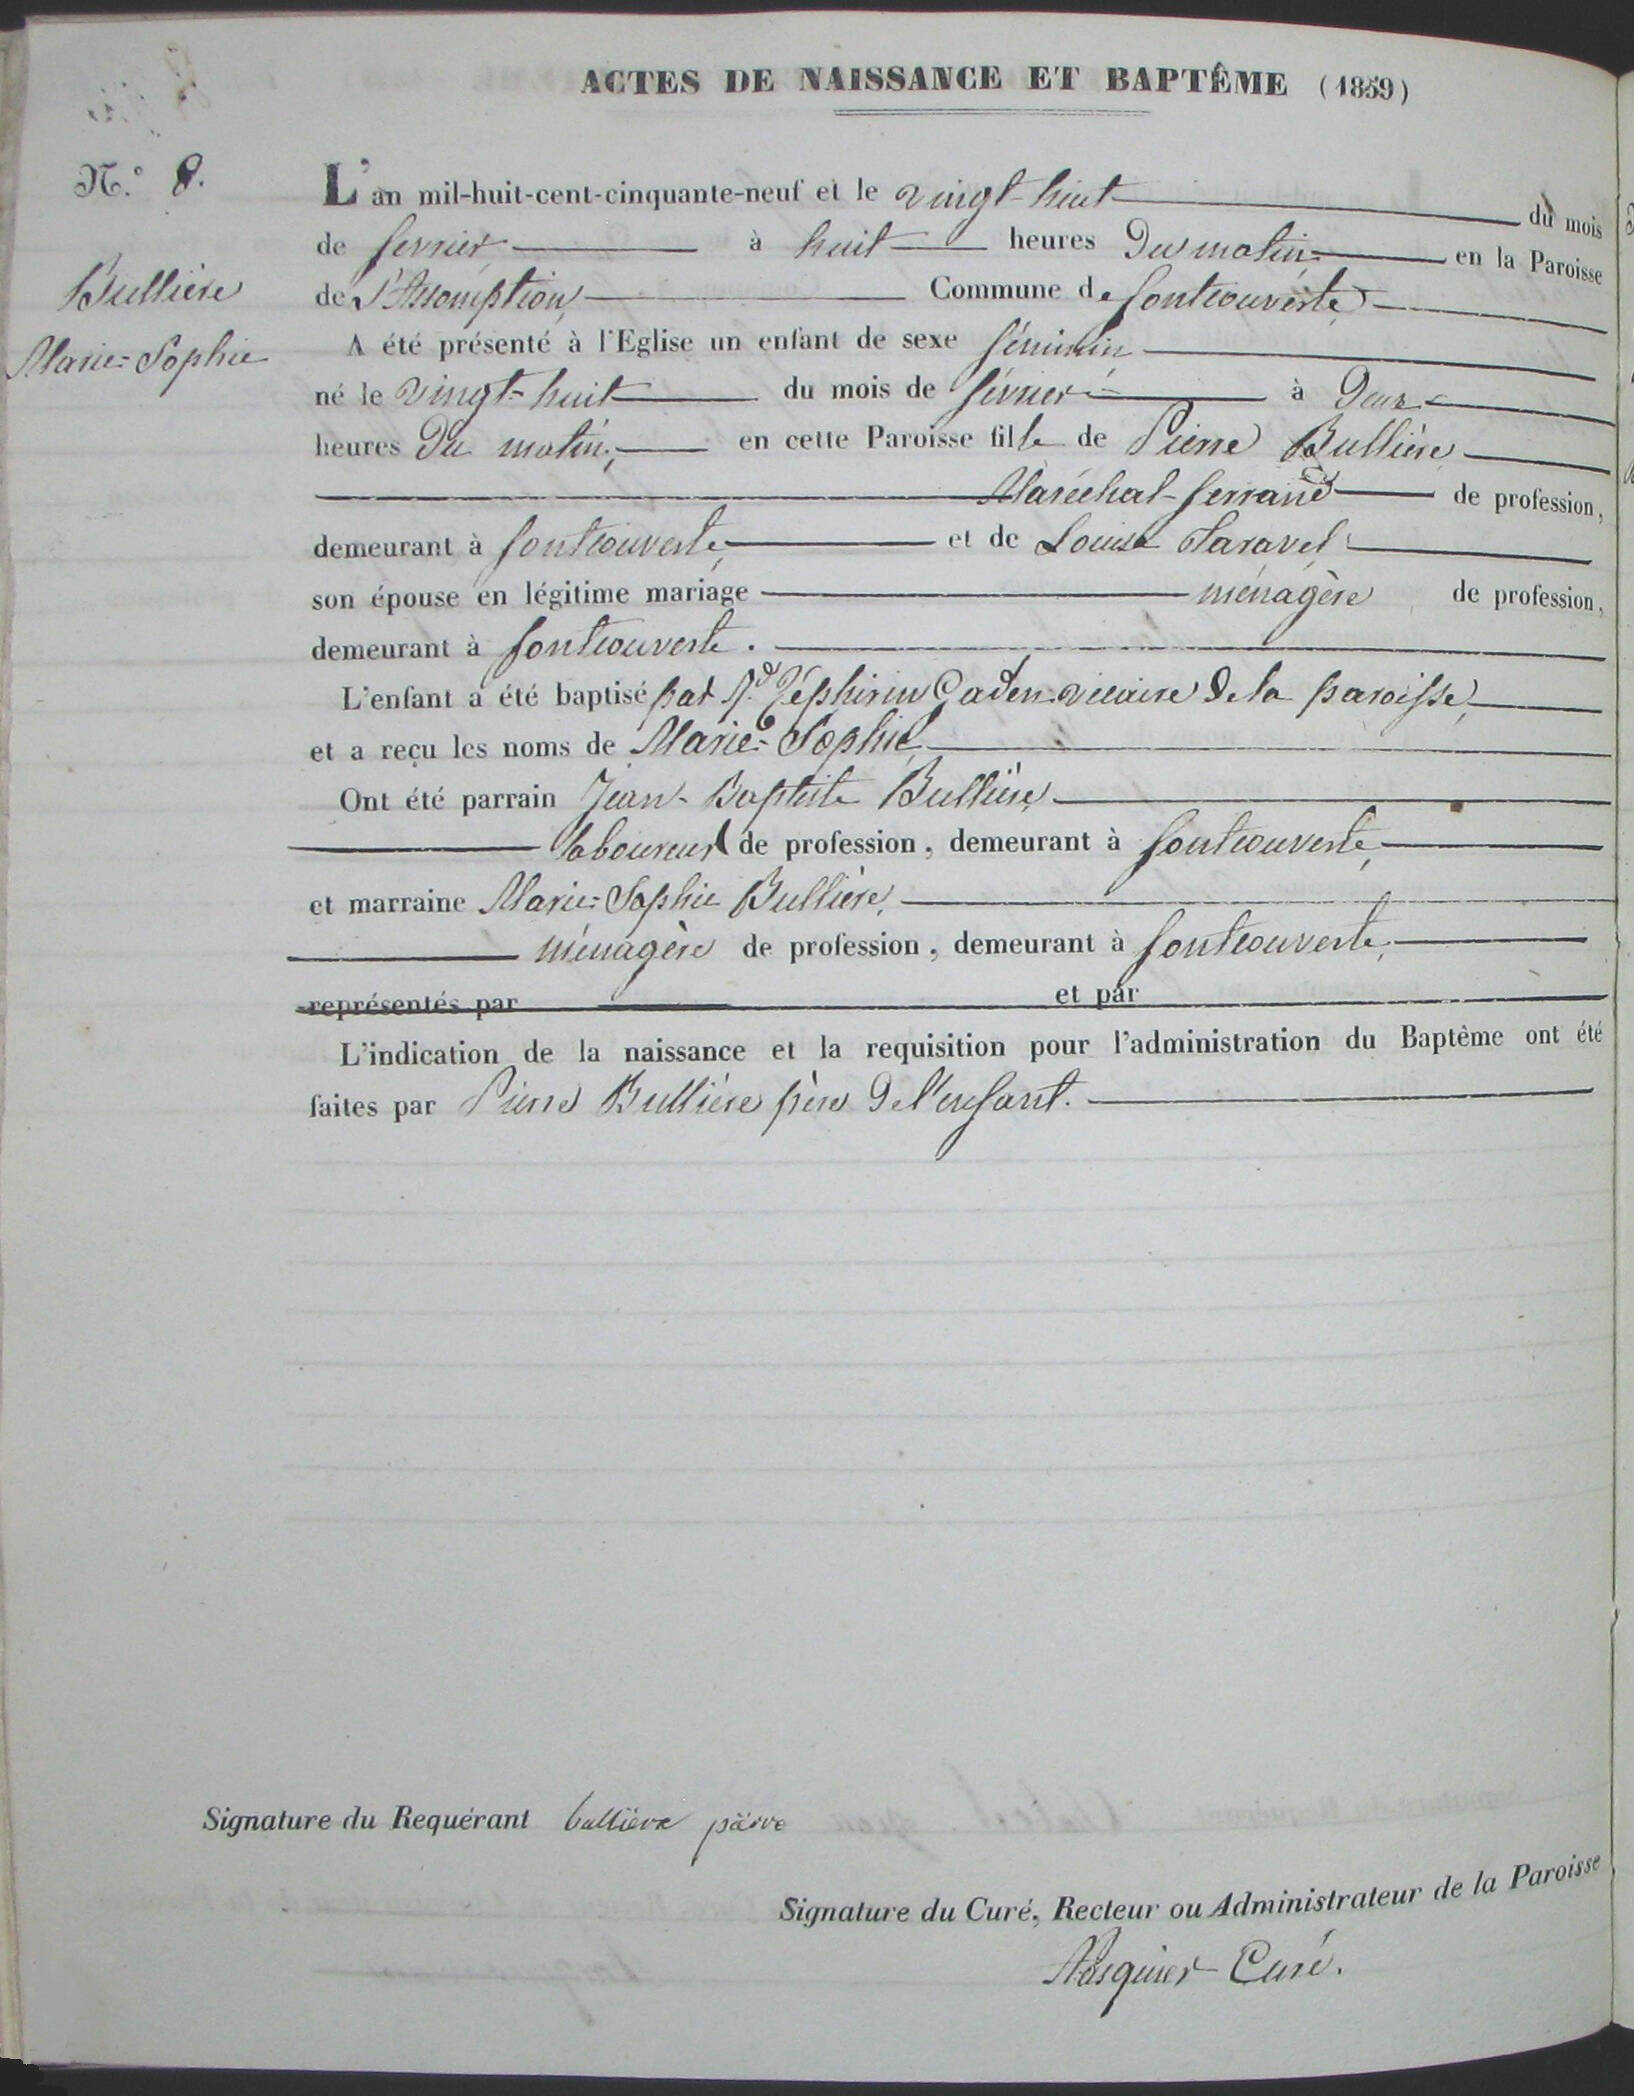 ACTES DE NAISSANCE ET BAPTÊME (1859)
N.° 8.
Bullière
Marie=Sophie
L'an mil-huit-cent-cinquante-neuf et le vingt-huit du mois
de fevrier à huit heures du matin en la Paroisse
de l'Assomption, Commune de fontcouverte
A été présenté à l'Eglise un enfant de sexe féminin
né le vingt-huit du mois de février à deux
heures du matin, en cette Paroisse fille de Pierre Bullière
Maréchal-ferrand de profession,
demeurant à fontcouverte, et de Louise Taravel
son épouse en légitime mariage ménagère de profession,
demeurant à fontcouverte.
L'enfant a été baptisé par R.d Zéphirin vicaire de la paroisse,
et a reçu les noms de Marie=Sophie
Ont été parrain Jean-Baptiste Bullière
laboureur de profession, demeurant à fontcouverte,
et marraine Marie=Sophie Bullière,
ménagère de profession, demeurant à fontcouverte,
représentés par et par
L'indication de la naissance et la requisition pour l'administration du Baptême ont été
faites par Pierre Bullière père de l'enfant.
Signature du Requérant bullière père
Signature du Curé, Recteur ou Administrateur de la Paroisse
Curé.